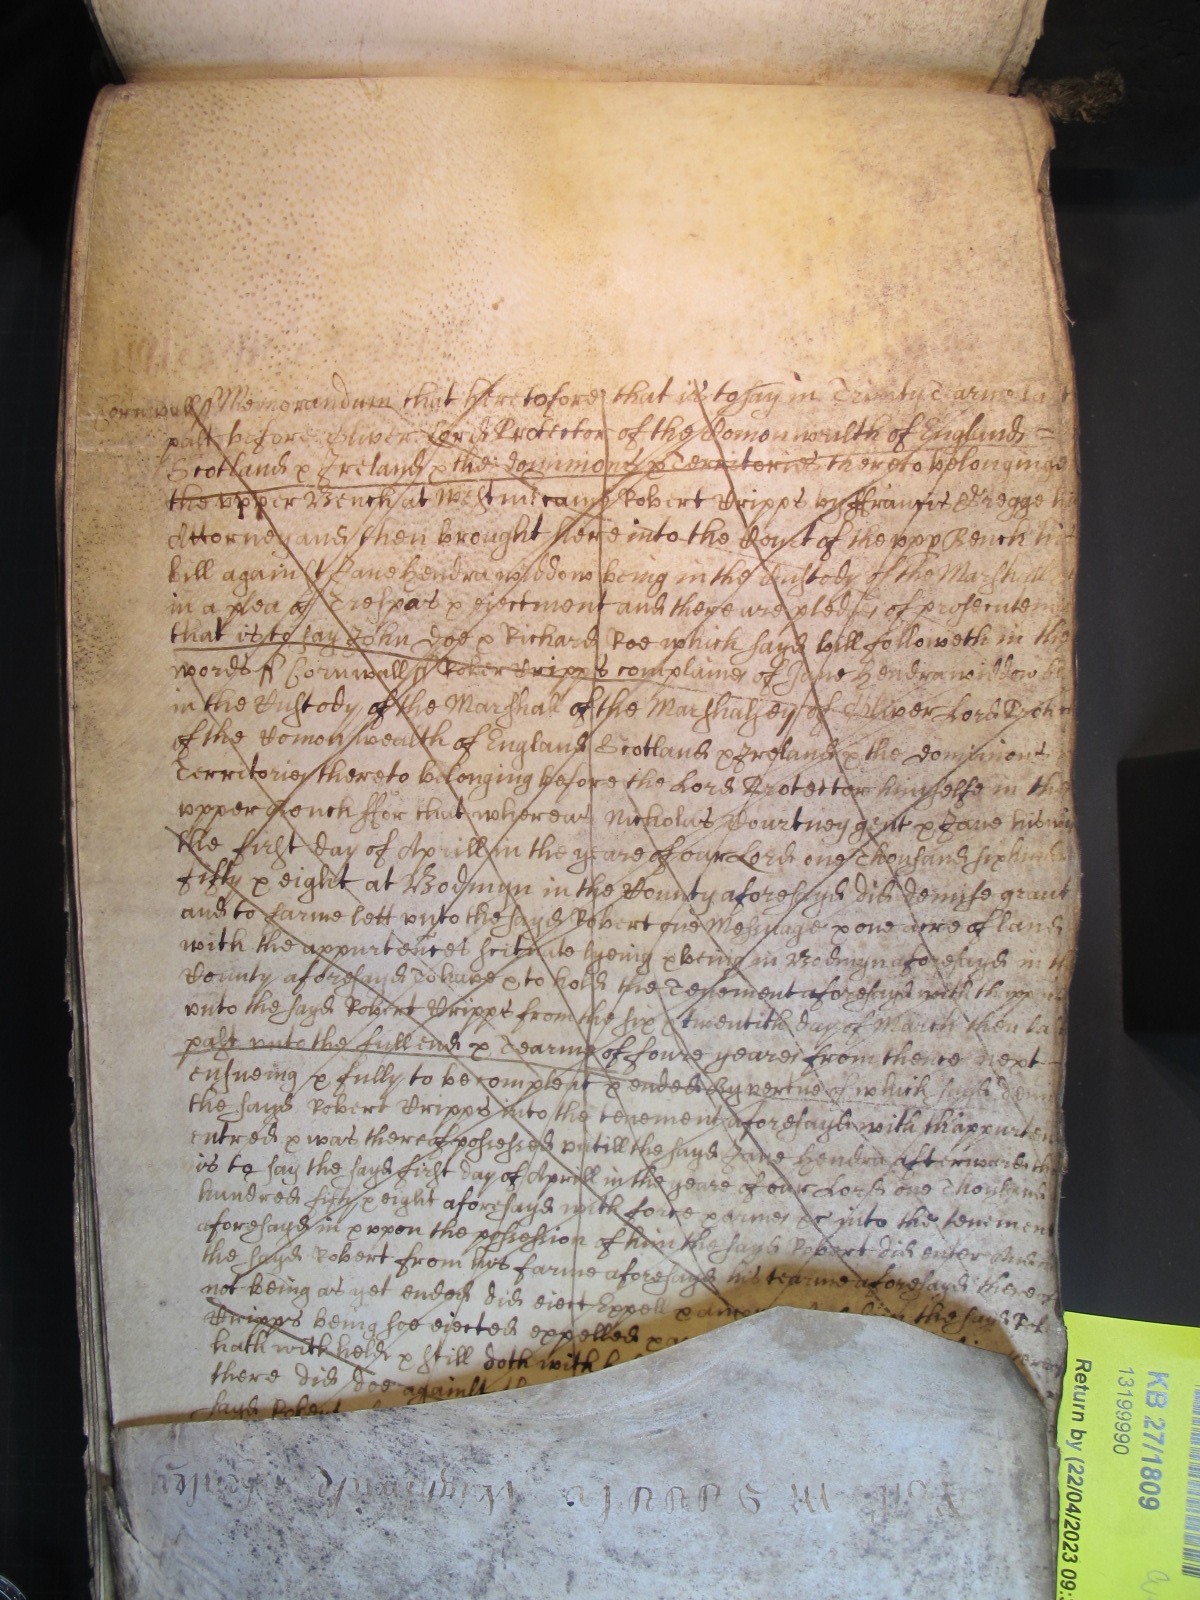 Cornwall ss Memorandum that heretofore that is to say in Trinity Tearme last
past before Oliver Lord Protector of the Comonwealth of England =
Scotland & Ireland & the dominions & Territories thereto belonginge
the upper Bench at Westm came Robert Cripps by ffrancis Gregge his
Attorney and then brought here into the Court of the upp Bench his
bill against Jane Hendra widdow being in the Custody of the Marshall
in a plea of Trespas & ejectment and there are pledges of prosecuteing
that is to say John Doe & Richard Roe which sayd bill followeth in these
words ss Cornwall ss Robert Cripps complaines of Jane Hendra widdow being
in the Custody of the Marshall of the Marshalsey of Oliver Lord Protector
of the Comonwealth of England Scotland & Ireland & the dominions &
Territories thereto belonging before the Lord Protector himselfe in the
upper Bench ffor that whereas Nicholas Courtney gent & Jane his wife
the first day of Aprill in the yeare of our Lord one Thousand six hundred
fifty & eight at Bodmyn in the County aforesayd did demise grant
and to farme lett unto the sayd Robert one Messuage & one acre of land
with the appurtences scituate lyeing & being in Bodmyn aforesayd in the
County aforesayd To have & to hold the Tenement aforesayd with thappur
unto the sayd Robert Cripps from the six & twentith day of March then last
past unto the full end & Tearme of foure yeares from thence next
ensueing & fully to be compleat & ended By vertue of which sayd demise
the sayd Robert Cripps into the tenement aforesayd with thappurten
entred & was thereof possessed untill the sayd Jane Hendra afterwards that
is to say the sayd first day of Aprill in the yeare of our Lord one Thousand
hundred fifty & eight aforesayd with force & armes &c into the tenement
aforesayd in & uppon the possession of him the sayd Robert did enter And him
the sayd Robert from his farme aforesayd his tearme aforesayd thereof
not being as yet ended did eject Expell & amove which the sayd Rob
Cripps being soe ejected expelled &
hath withheld & still doth with
there did doe against the
sayd Robert